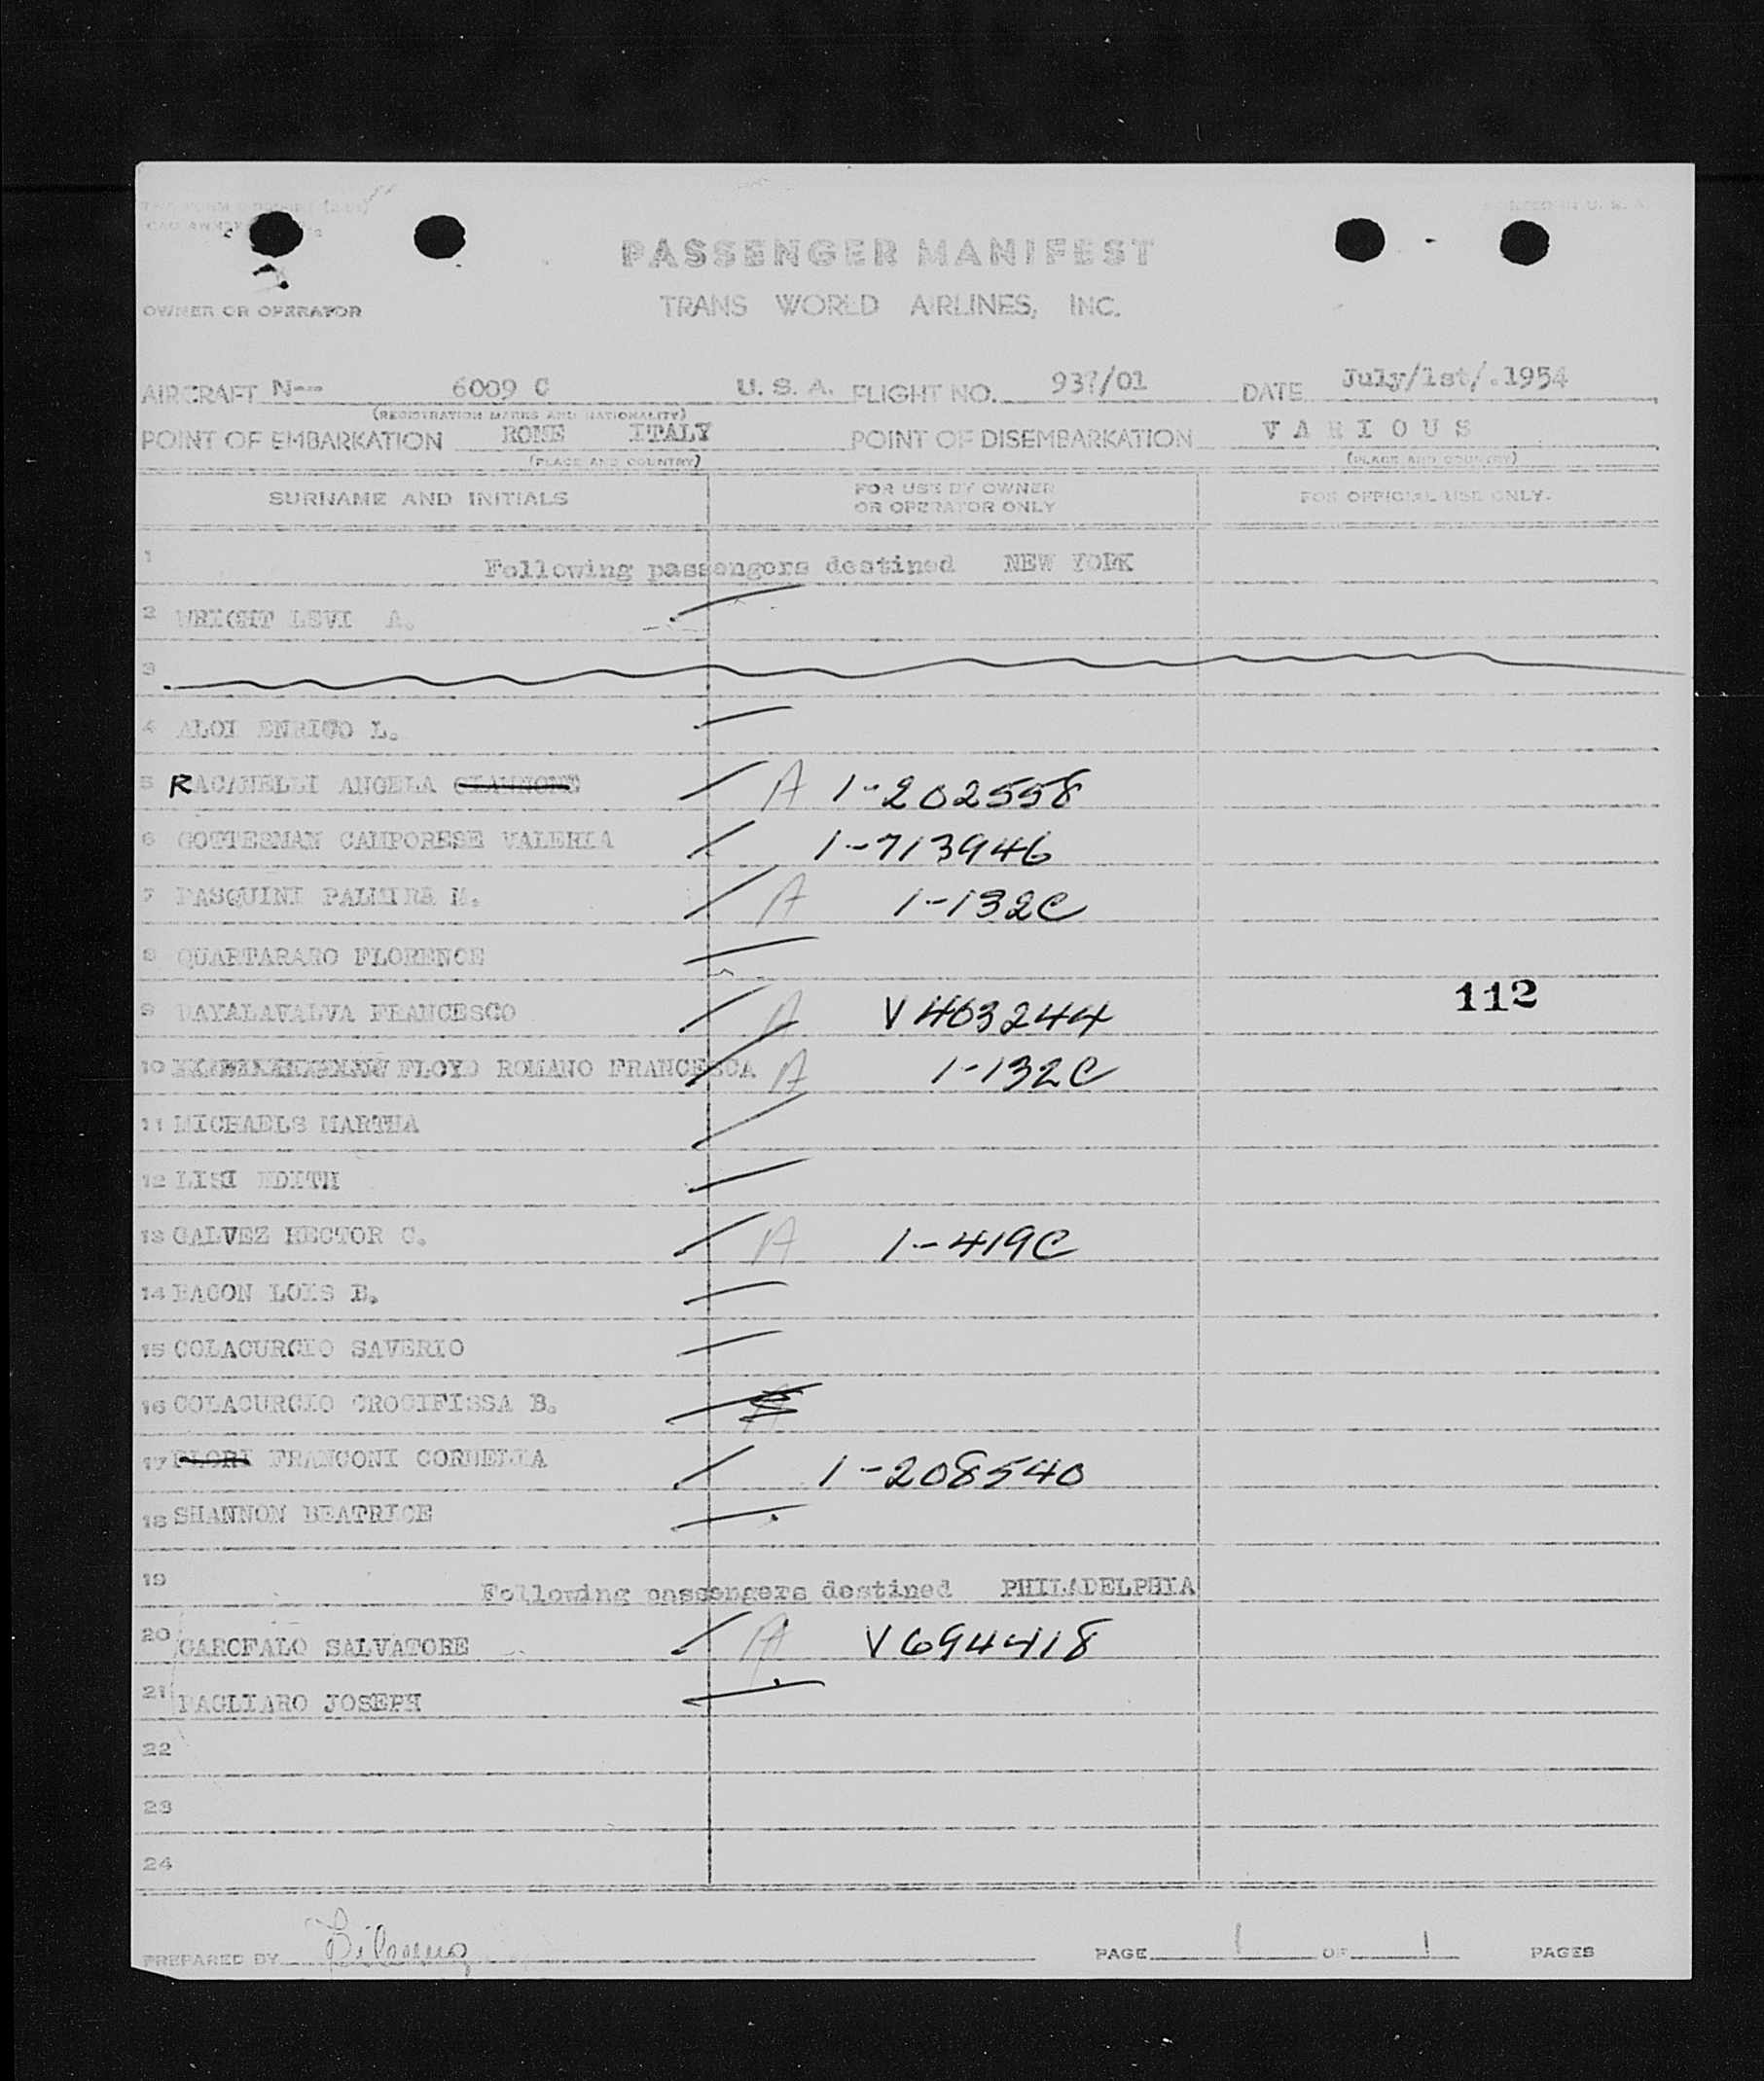 PASSENGER MANIFEST
OWNER OR OPERATOR TRANS WORLD AIRLINES, INC.
AIRCRAFT N-- 6009 C U. S. A. FLIGHT NO. 937/01 DATE July/1st/.1954
(REGISTRATION MARKS AND NATIONALITY)
POINT OF EMBARKATION ROME ITALY POINT OF DISEMBARKATION VARIOUS
(PLACE AND COUNTRY) (PLACE AND COUNTRY)
SURNAME AND INITIALS FOR USE BY OWNER OR OPERATOR ONLY FOR OFFICIAL USE ONLY.
1 Following passengers destined NEW YORK
2 WRIGHT LEVI A.
3
4 ALOI ENRICO L.
5 RACANELLI ANGELA A 1-202558
6 GOTTESMAN CAMPORESE VALERIA 1-713946
7 PASQUINI PALMIRA M. A 1-132C
8 QUARTARARO FLORENCE
9 FRANCESCO A V403244
112
10 FLOYD ROMANO FRANCESCA A 1-132C
11 MICHAELS MARTHA
12 LISI EDITH
13 GALVEZ HECTOR C. A 1-419C
14 BACON LOIS E.
15 COLACURCIO SAVERIO
16 COLACURCIO CROCIFISSA B.
17 FRANCONI CORNELIA 1-208540
18 SHANNON BEATRICE
19 Following passengers destined PHILADELPHIA
20 GAROFALO SALVATORE A V694418
21 PAGLIARO JOSEPH
22
23
24
PREPARED BY PAGE 1 OF 1 PAGES